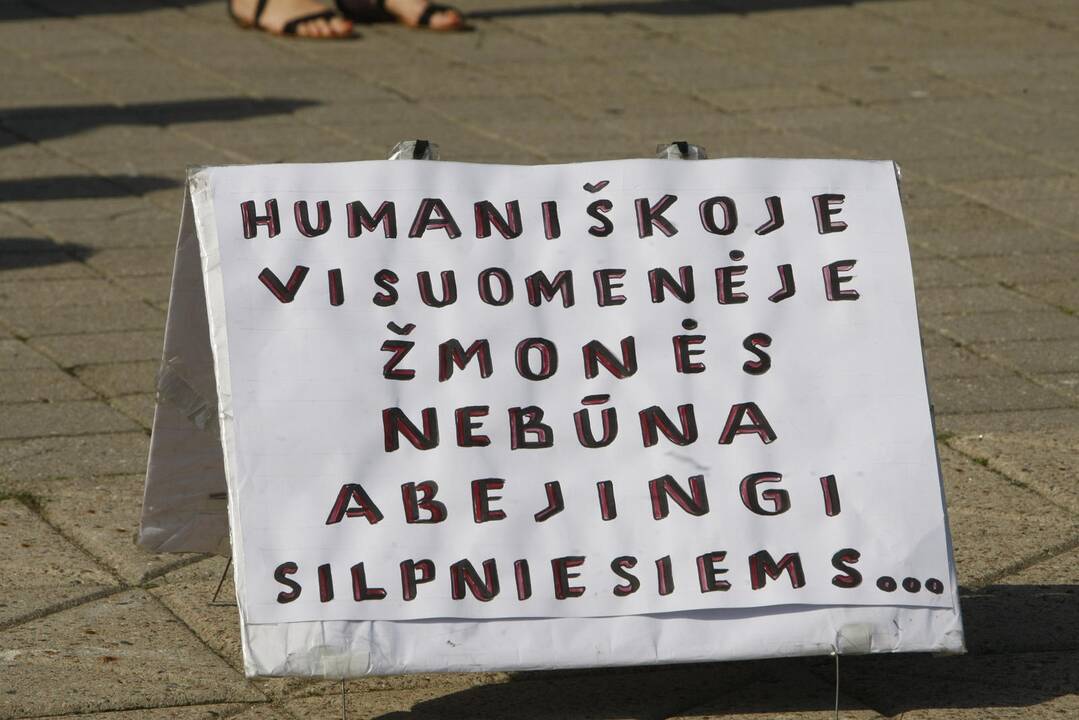 HUMANIŠKOJE
VISUOMENĖJE
ŽMONĖS
NEBŪNA
ABEJINGI
SILPNIESIEMS...